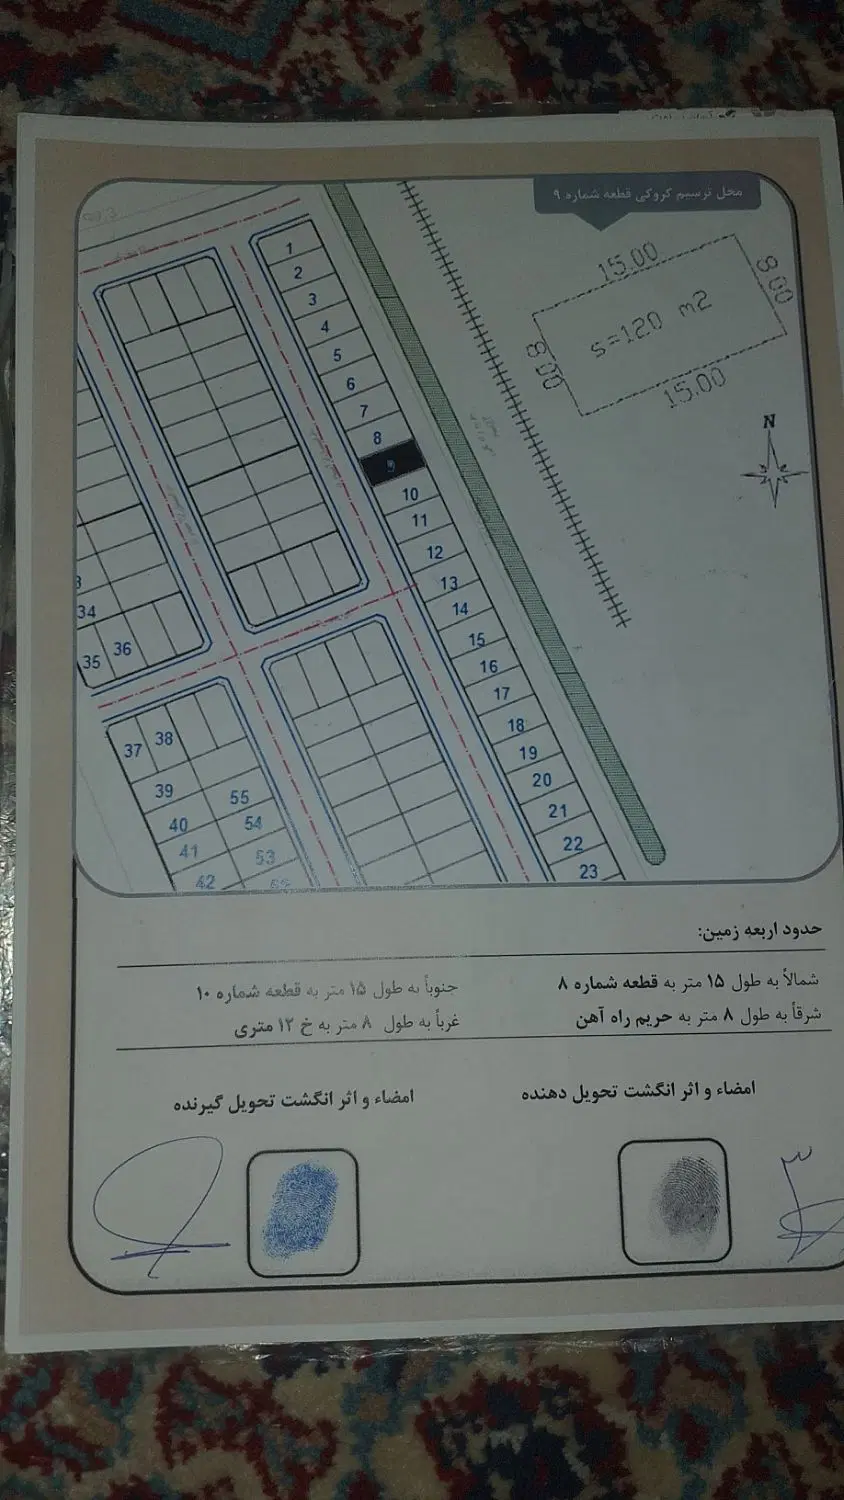 محل ترسیم کروکی قطعه شماره ۹
15.00
8.00
s=120 m2
8.00
15.00
N
1
2
3
4
5
6
7
8
9
10
11
12
13
14
15
16
17
18
19
20
21
22
23
34
35
36
37
38
39
40
41
42
55
54
53
حدود اربعه زمین:
شمالاً به طول ۱۵ متر به قطعه شماره ۸
جنوباً به طول ۱۵ متر به قطعه شماره ۱۰
شرقاً به طول ۸ متر به حریم راه آهن
غرباً به طول ۸ متر به خ ۱۲ متری
امضاء و اثر انگشت تحویل دهنده
امضاء و اثر انگشت تحویل گیرنده